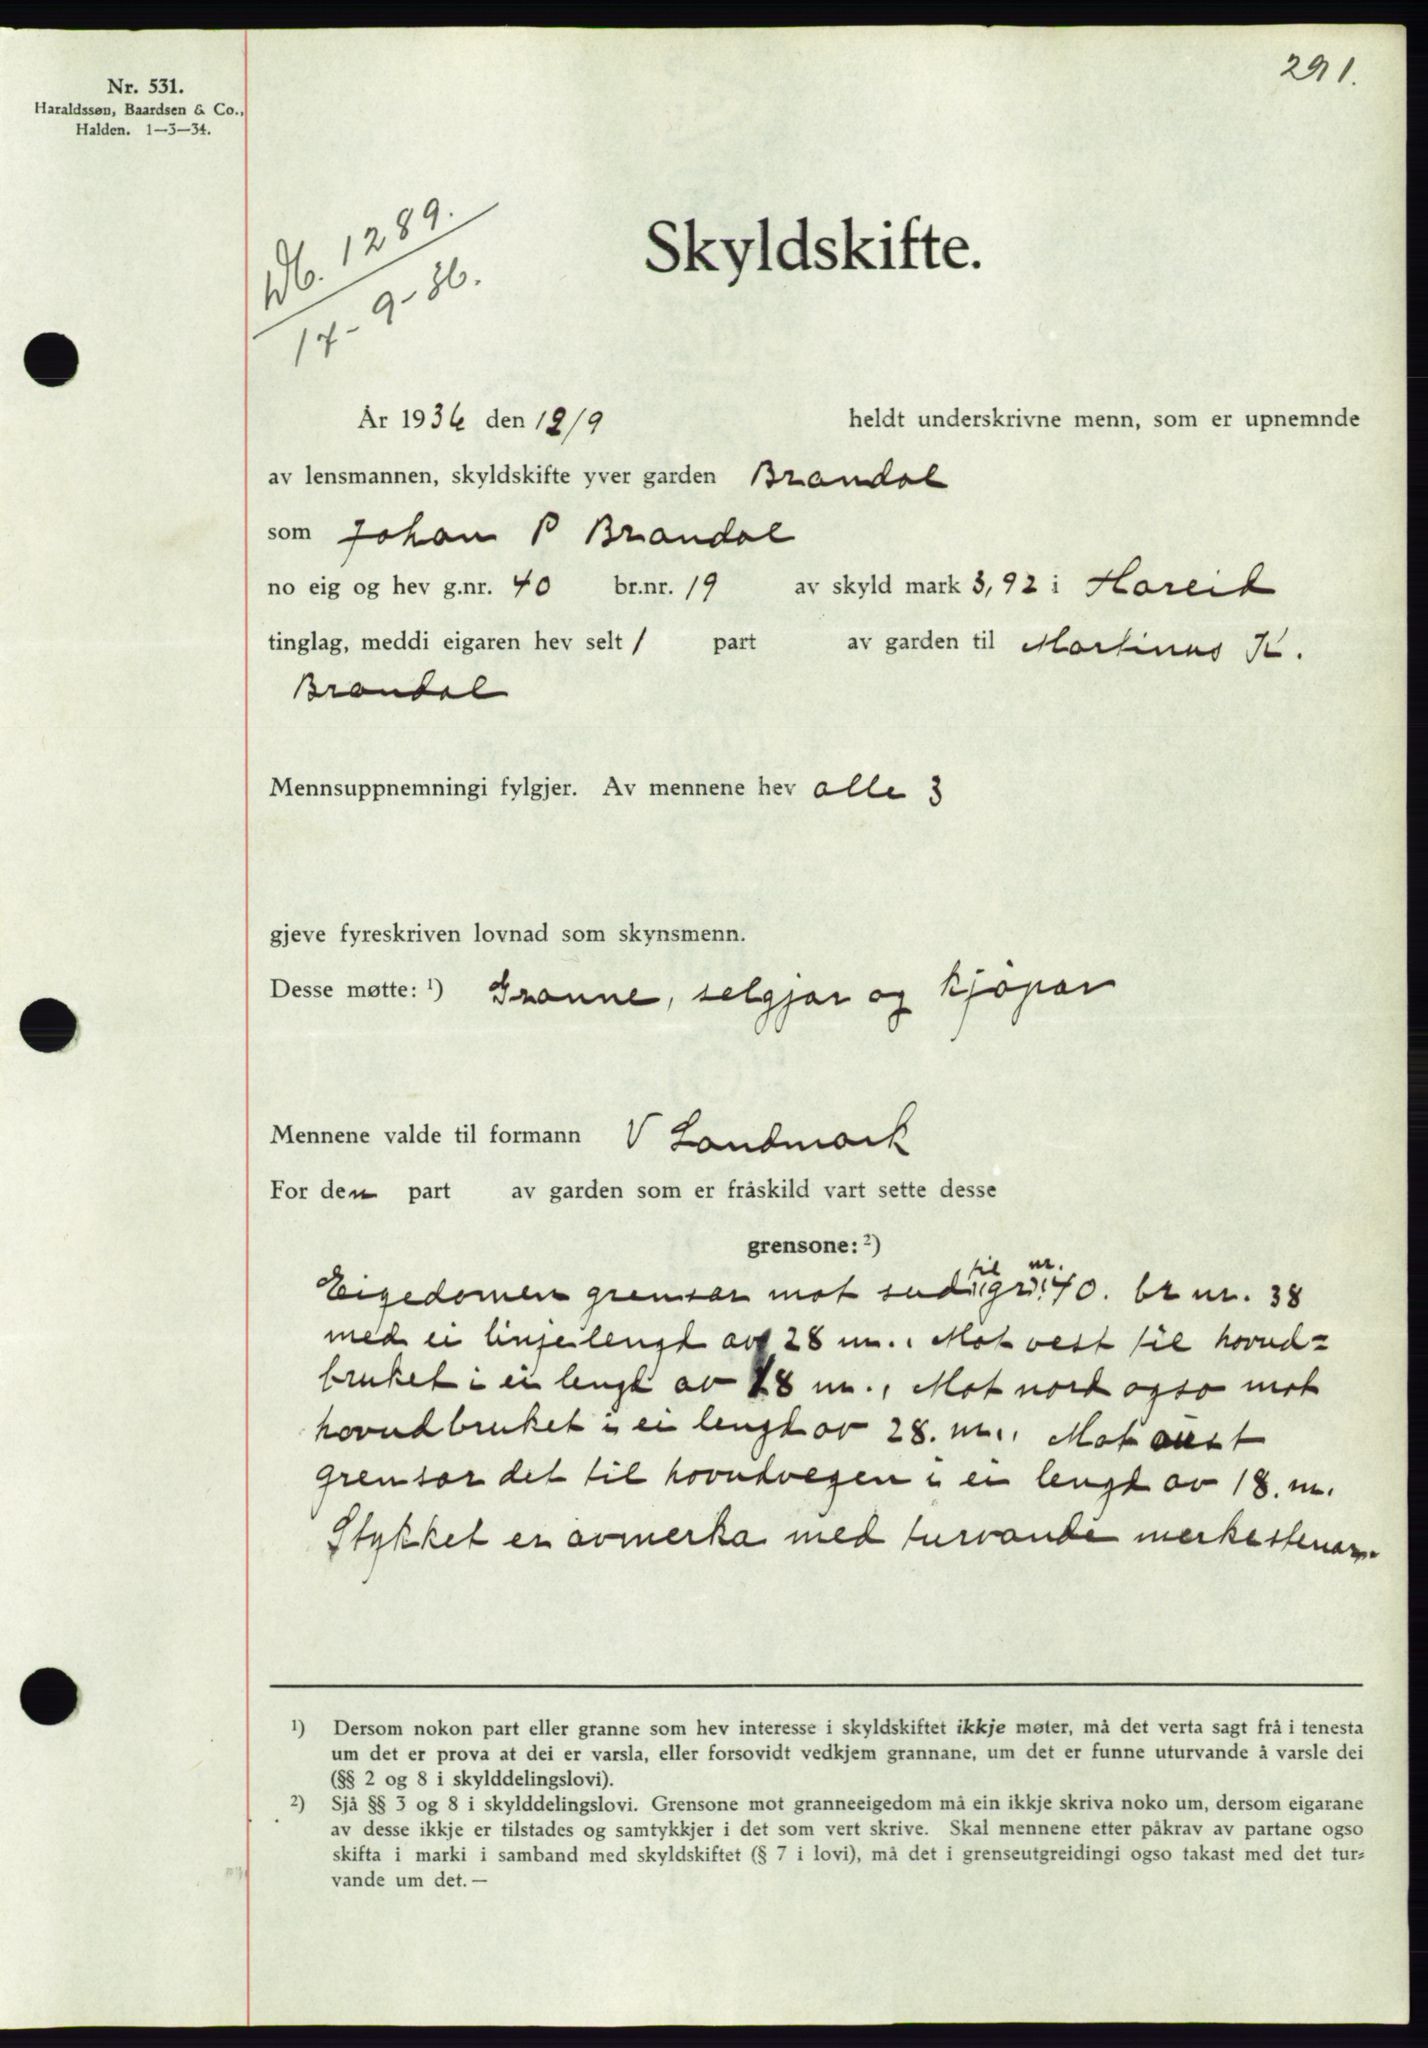 291.
Nr. 531.
Haraldssøn, Baardsen & Co.,
Halden. 1—3—34.
Db. 1289.
17-9-36.
Skyldskifte.
År 1936 den 12/9 heldt underskrivne menn, som er upnemnde
av lensmannen, skyldskifte yver garden Brandal
som Johan P Brandal
no eig og hev g.nr. 40 br.nr. 19 av skyld mark 3,92 i Hareid
tinglag, meddi eigaren hev selt 1 part av garden til Martinus K.
Brandal
Mennsuppnemningi fylgjer. Av mennene hev alle 3
gjeve fyreskriven lovnad som skynsmenn.
Desse møtte: ¹) Granne, selgjar og kjöpar
Mennene valde til formann V Landmark
For den part av garden som er fråskild vart sette desse
grensone: ²)
Eigedomen grensar mot sud til gr. nr. 40. br nr. 38
med ei linjelengd av 28 m.. Mot vest til hovud=
bruket i ei lengd av 18 m., Mot nord ogso mot
hovudbruket i ei lengd av 28. m.. Mot aust
grensar det til hovudvegen i ei lengd av 18. m.
Stykket er avmerka med turvande merkestenar.
¹) Dersom nokon part eller granne som hev interesse i skyldskiftet ikkje møter, må det verta sagt frå i tenesta
um det er prova at dei er varsla, eller forsovidt vedkjem grannane, um det er funne uturvande å varsle dei
(§§ 2 og 8 i skylddelingslovi).
²) Sjå §§ 3 og 8 i skylddelingslovi. Grensone mot granneeigedom må ein ikkje skriva noko um, dersom eigarane
av desse ikkje er tilstades og samtykkjer i det som vert skrive. Skal mennene etter påkrav av partane ogso
skifta i marki i samband med skyldskiftet (§ 7 i lovi), må det i grenseutgreidingi ogso takast med det tur=
vande um det. —